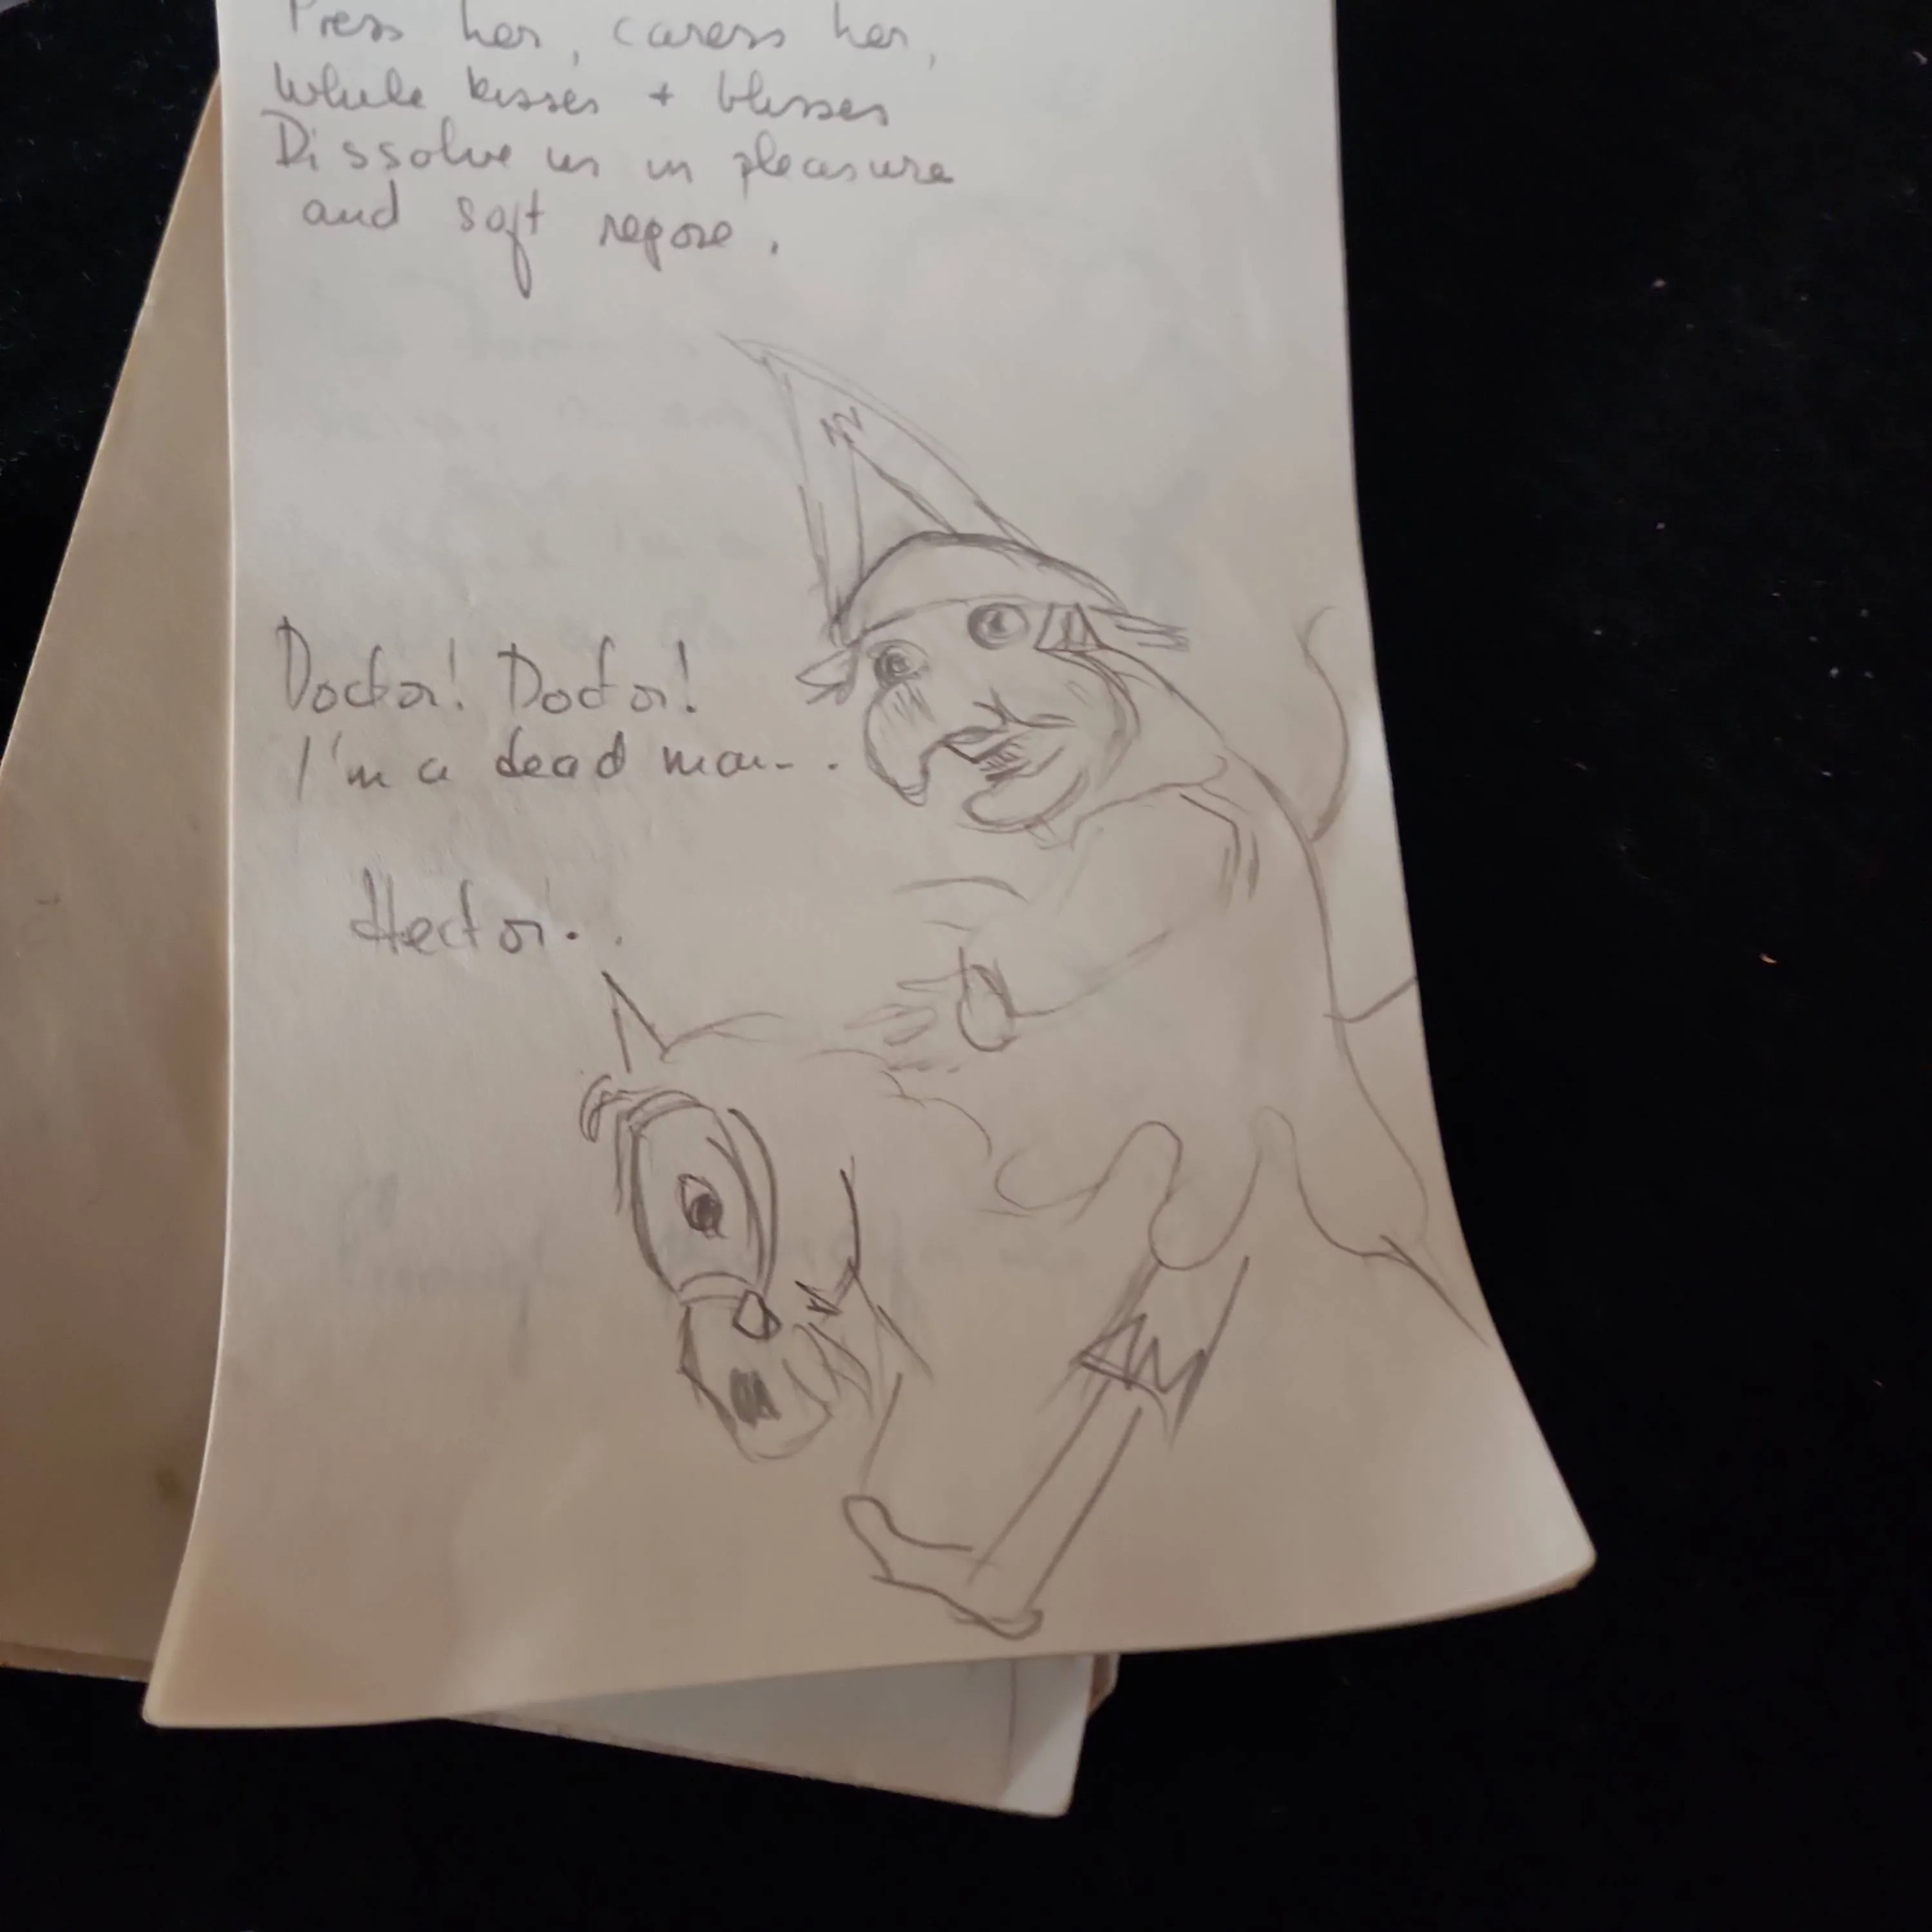 Press her, caress her,
While kisses + blisses
Dissolve us in pleasure
and soft repose.
Doctor! Doctor!
I'm a dead man..
Hector..